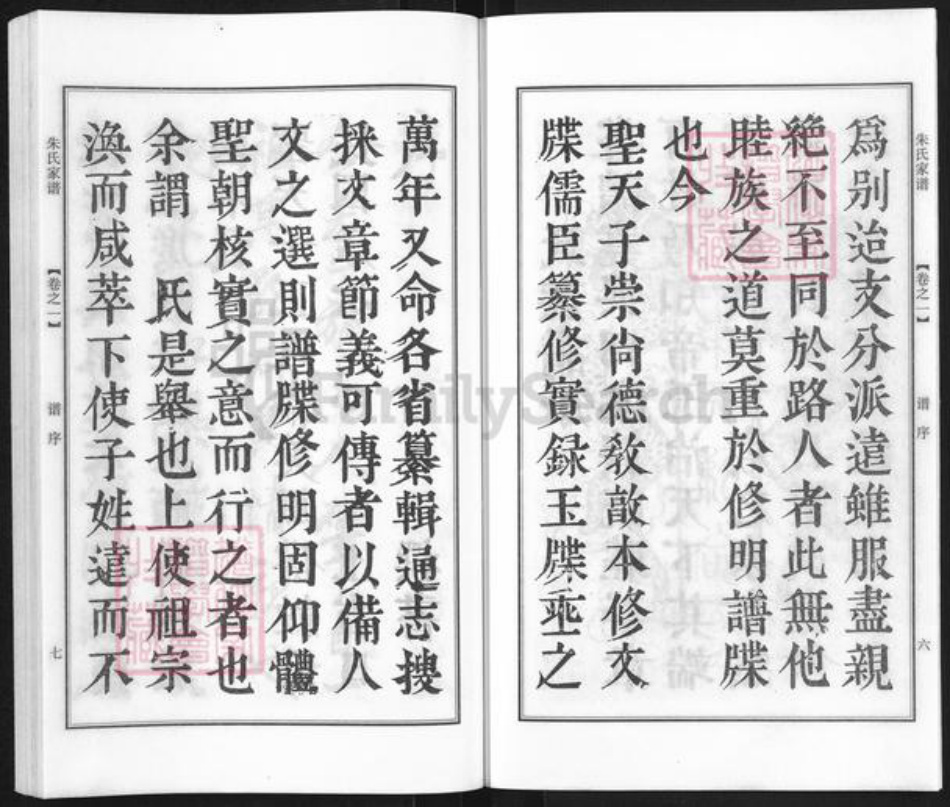 朱氏家谱
【卷之一】
谱序
六
爲别迨支分派遠雖服盡親
絶不至同於路人者此無他
睦族之道莫重於修明譜牒
也今
聖天子崇尚德敎敨本修文
牒儒臣纂修實録玉牒乖之
萬年又命各省纂輯通志搜
採文章節義可傳者以備人
文之選則譜牒修明固仰體
聖朝核實之意而行之者也
余謂 氏是舉也上使祖宗
渙而咸萃下使子姓遠而不
朱氏家谱
【卷之一】
谱序
七
FamilySearch